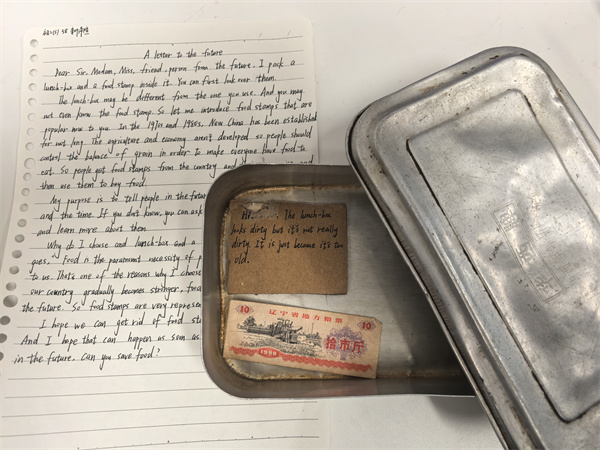 A letter to the future
Dear Sir, Madam, Miss, friend, person from the future, I pack a
lunch-box and a food stamp inside it. You can first look over them.
The lunch-box may be different from the one you use. And you may
not even know the food stamp. So let me introduce food stamps that are
popular now to you. In the 1970s and 1980s, New China has been established
for not long. The agriculture and economy aren't developed so people should
control the balance of grain in order to make everyone have food to
eat. So people got food stamps from the country and
then use them to buy food.
My purpose is to tell people in the future
and the time. If you don't know, you can ask
and learn more about them.
Why do I choose and lunch-box and a
goes, Food is the paramount necessity of p
to us. That's one of the reasons why I choose
our country gradually becomes stronger,
the future. So food stamps are very represen
I hope we can get rid of food st
And I hope that can happen as soon as
in the future, can you save food?
The lunch-box
looks dirty but it's not really
dirty. It is just because it's too
old.
10 辽宁省地方粮票 10
拾市斤
1980